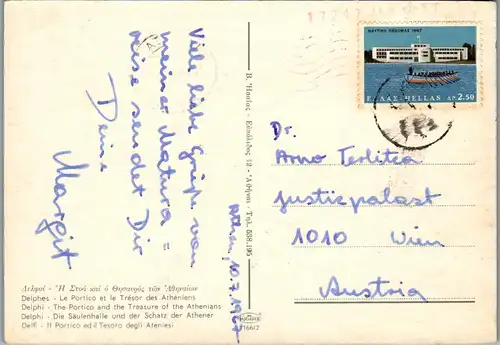 Viele liebe Grüße von
meiner Matura =
reise sendet Dir
Deine
Margit
Athen, 10.7.1967
Δελφοί - Ἡ Στοὰ καὶ ὁ Θησαυρὸς τῶν Ἀθηναίων
Delphes - Le Portico et le Trésor des Athéniens
Delphi - The Portico and the Treasure of the Athenians
Delphi - Die Säulenhalle und der Schatz der Athener
Delfi - Il Portico ed il Tesoro degli Ateniesi
12 - Ἀθῆναι - Τηλ. 538.195
ΝΑΥΤΙΚΗ ΕΒΔΟΜΑΣ 1967
ΕΛΛΑΣ-HELLAS ΔΡ 2.50
Dr.
Arno Terlitza
Justicpalast
1010 Wien
Austria